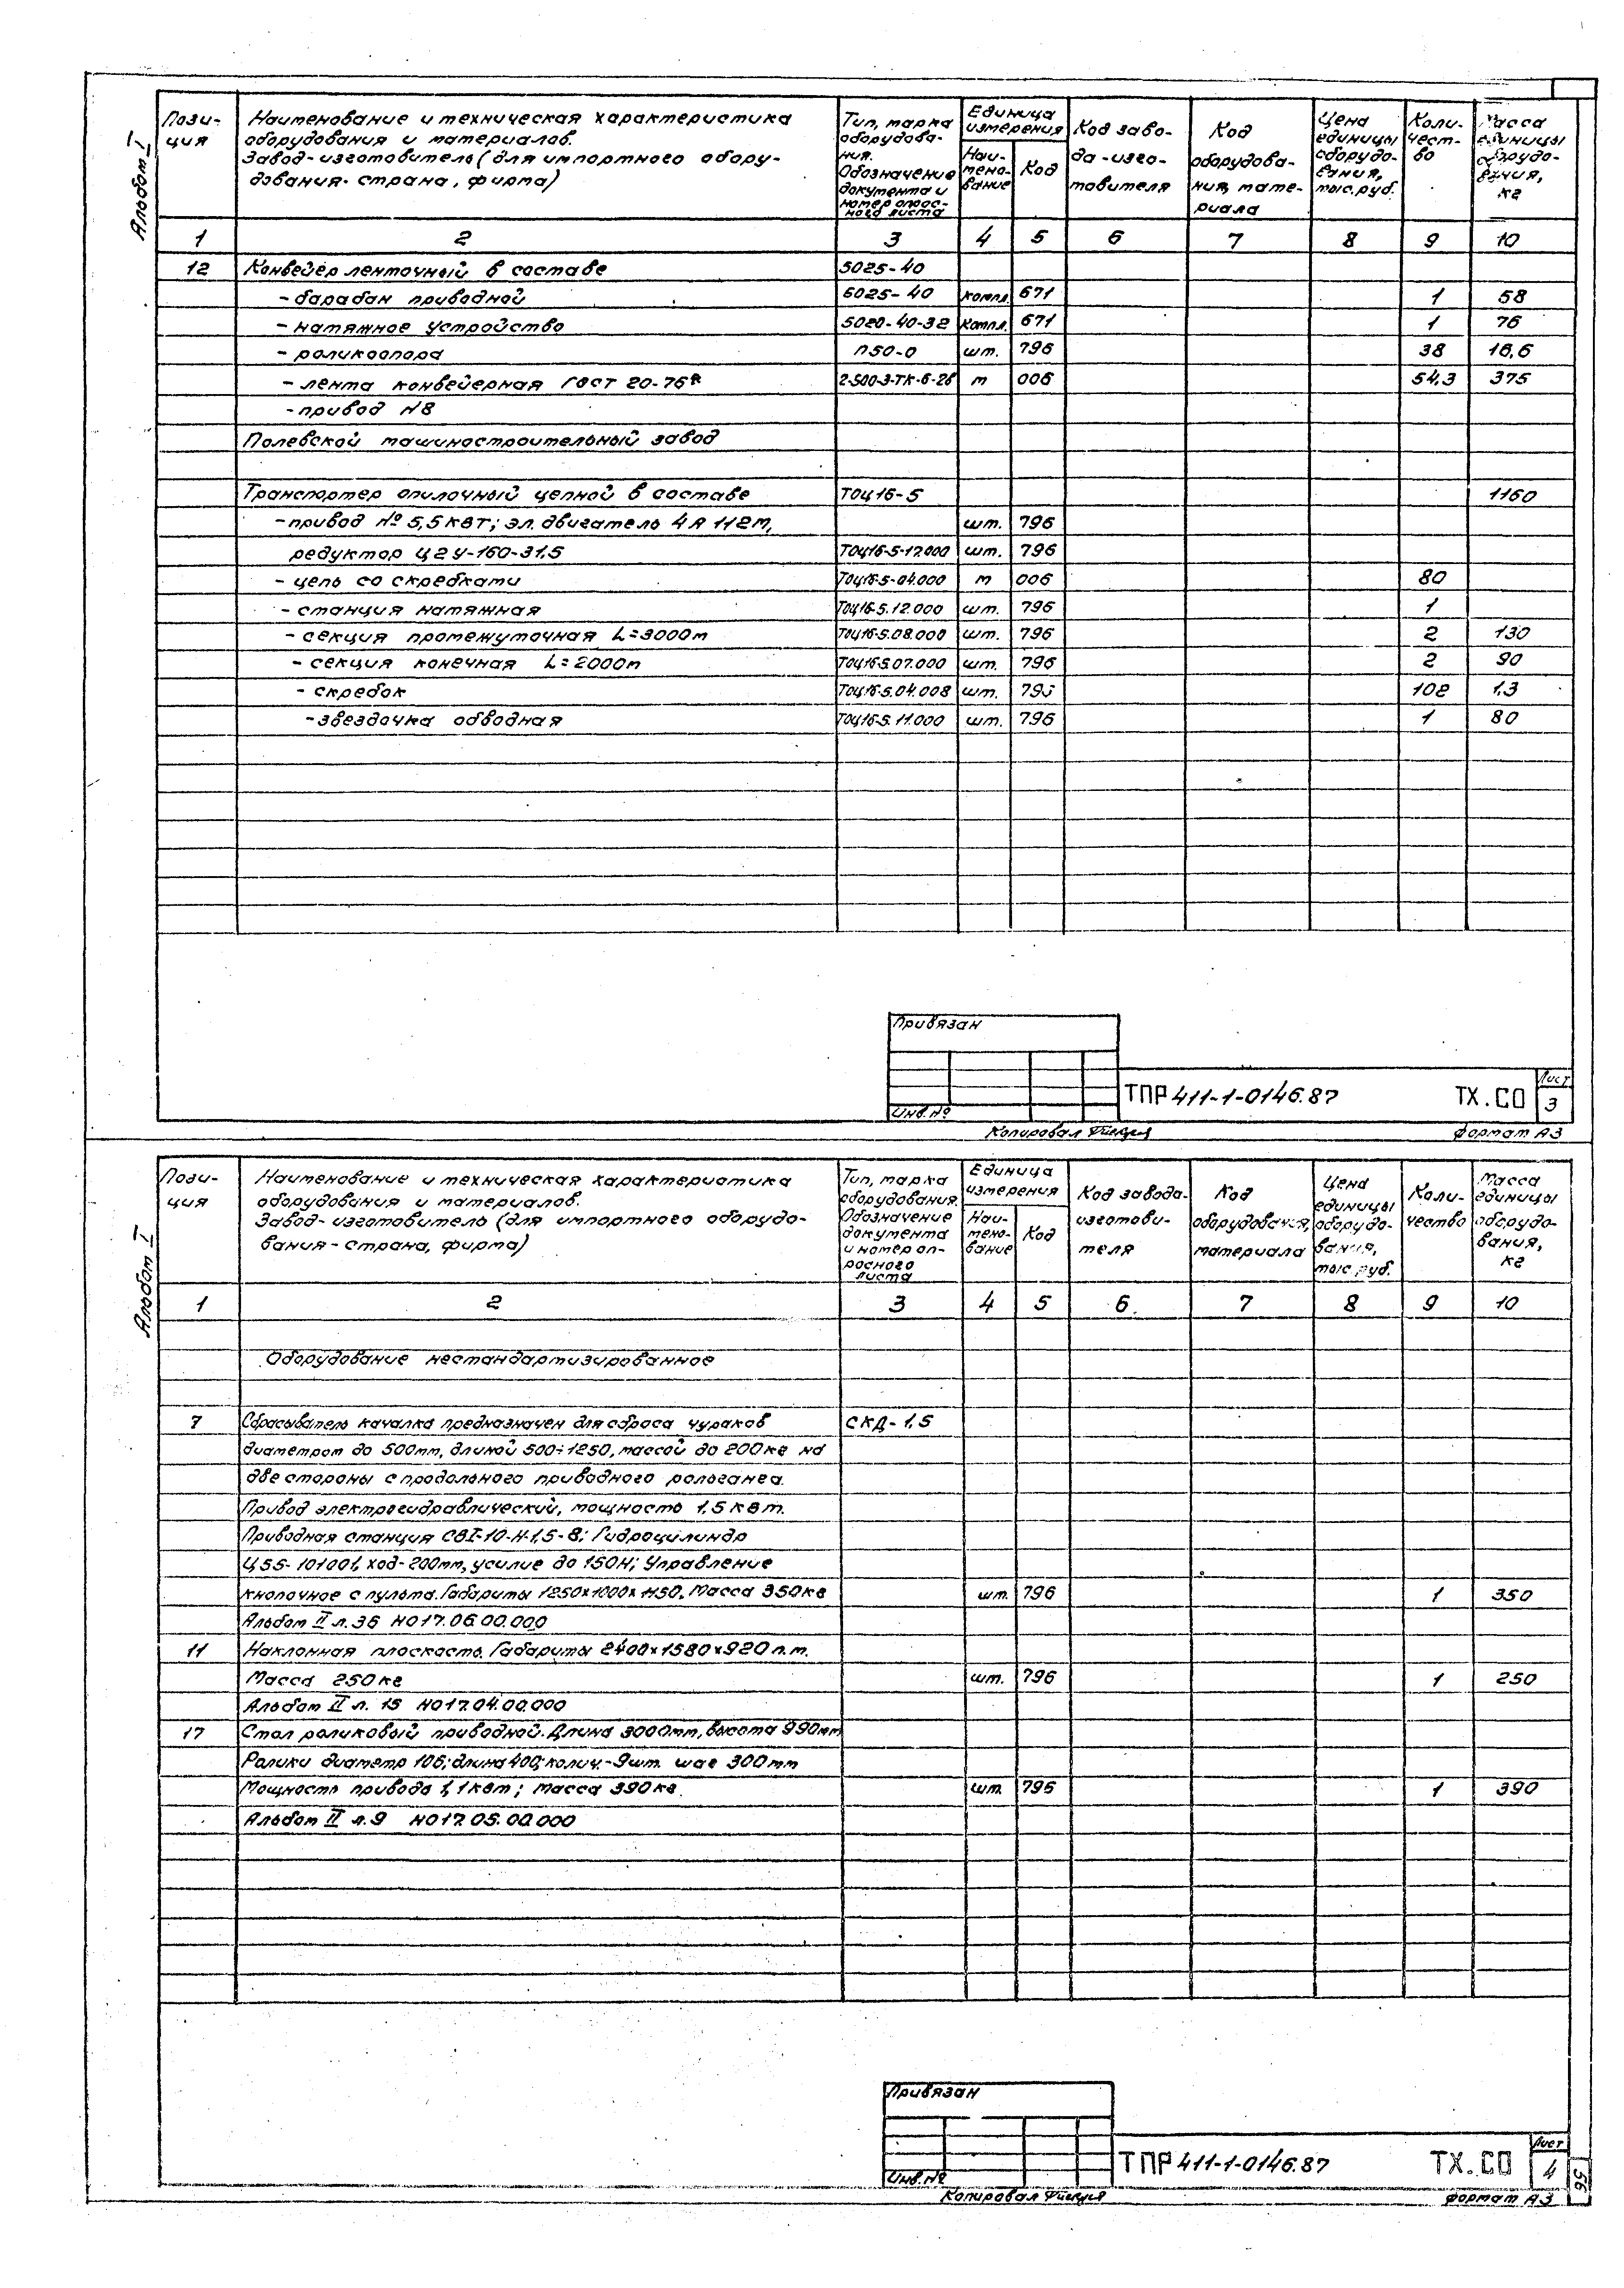 Альбом I
Пози-
ция
Наименование и техническая характеристика
оборудования и материалов.
Завод-изготовитель (для импортного обору-
дования- страна, фирма)
Тип, марка
оборудова-
ния.
Обозначение
документа и
номер опрос-
ного листа
Единица
измерения
Наи-
мено-
вание
Код
Код заво-
да-изго-
товителя
Код
оборудова-
ния, мате-
риала
Цена
единицы
оборудо-
вания,
тыс.руб.
Коли-
чест-
во
Масса
единицы
оборудо-
вания,
кг
1 2 3 4 5 6 7 8 9 10
12 Конвейер ленточный в составе 5025-40
-барабан приводной 6025-40 компл. 671 1 58
-натяжное устройство 5020-40-32 компл. 671 1 76
-роликоопора П50-0 шт. 796 38 16,6
-лента конвейерная ГОСТ 20-76 2-500-3-ТК-6-2б м 006 54,3 375
-привод N8
Полевской машиностроительный завод
Транспортер опилочный цепной в составе ТОЦ16-5 1160
-привод № 5,5кВт; эл. двигатель 4А 112М, шт. 796
редуктор Ц2У-160-31,5 ТОЦ16-5-17.000 шт. 796
-цепь со скребками ТОЦ16-5-04.000 м 006 80
-станция натяжная ТОЦ16-5.12.000 шт. 796 1
-секция промежуточная L=3000м ТОЦ16-5.08.000 шт. 796 2 130
-секция конечная L=2000м ТОЦ16-5.07.000 шт. 796 2 90
-скребок ТОЦ16-5.04.008 шт. 796 108 1,3
-звездочка обводная ТОЦ16-5.11.000 шт. 796 1 80
Привязан
Инв.№
ТПР 411-1-0146.87 ТХ.СО
Лист
3
Копировал
Формат А3
Альбом I
Пози-
ция
Наименование и техническая характеристика
оборудования и материалов.
Завод-изготовитель (для импортного оборудо-
вания-страна, фирма)
Тип, марка
оборудования.
Обозначение
документа
и номер оп-
росного
листа
Единица
измерения
Наи-
мено-
вание
Код
Код завода-
изготови-
теля
Код
оборудования,
материала
Цена
единицы
оборудо-
вания,
тыс.руб.
Коли-
чество
Масса
единицы
оборудо-
вания,
кг
1 2 3 4 5 6. 7 8 9 10
Оборудование нестандартизированное
7 Сбрасыватель качалка предназначен для сброса чураков СКД-1,5
диаметром до 500мм, длиной 500÷1250, массой до 200кг на
две стороны с продольного приводного рольганга.
Привод электрогидравлический, мощность 1,5кВт.
Приводная станция СВI-10-Н-1,5-8; Гидроцилиндр
Ц55-101001, ход-200мм, усилие до 150Н; Управление
кнопочное с пульта. Габариты 1250х1000х1150. Масса 350кг шт. 796 1 350
Альбом II л.36 НО17.06.00.000
11 Наклонная плоскость. Габариты 2400х1580х920 п.м.
Масса 250кг шт. 796 1 250
Альбом II л. 15 НО17.04.00.000
17 Стол роликовый приводной. Длина 3000мм, высота 990мм
Ролики диаметр 106; длина 400; колич.-9шт. шаг 300мм
Мощность привода 1,1кВт; масса 390кг. шт. 796 1 390
Альбом II л.9 НО17.05.00.000
Привязан
Инв.№
ТПР 411-1-0146.87 ТХ.СО
Лист
4
56
Копировал
Формат А3